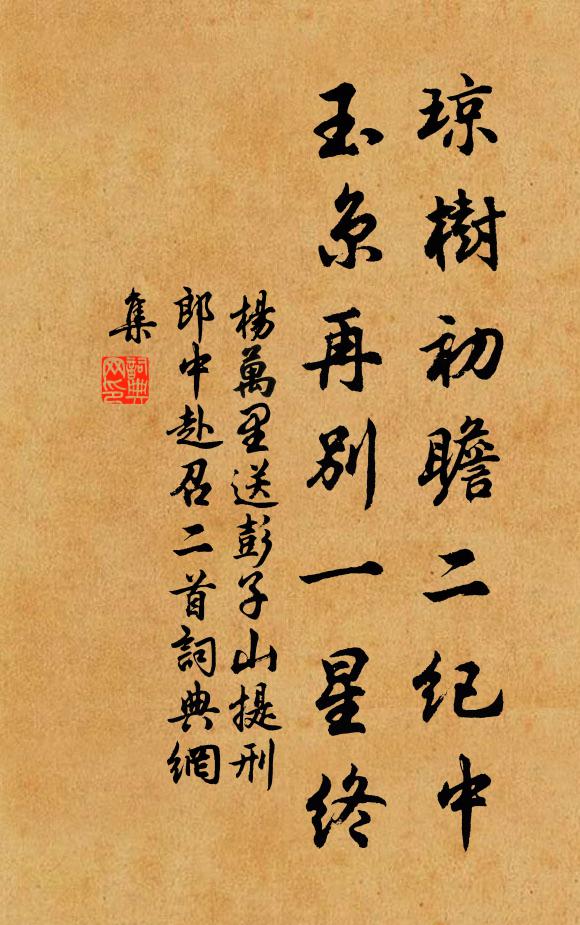 琼樹初瞻二纪中
玉京再别一星终
楊萬里送彭子山提刑
郎中赴召二首詞典網
集
詞典
网印